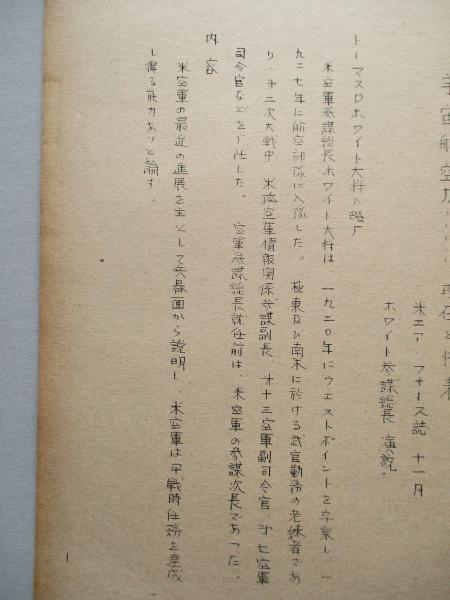 宇宙航空力
米エア フォース誌 十一月
ホワイト参謀総長 演説。
トーマスDホワイト大将の略歴
米空軍参謀総長ホワイト大将は 一九二〇年にウエストポイントを卒業し、一
九二七年に航空部隊に入隊した。 極東及び南米に於ける武官勤務の老練者であ
り、才二次大戦中 米陸空軍情報関係参謀副長、才十三空軍副司令官、才七空軍
司令官などを歴任した。 空軍参謀総長就任前は、米空軍の参謀次長であった。
内 容
米空軍の最近の進展を主として兵器面から説明し、米空軍は平戦時任務を達成
し得る能力ありと論ず。
1